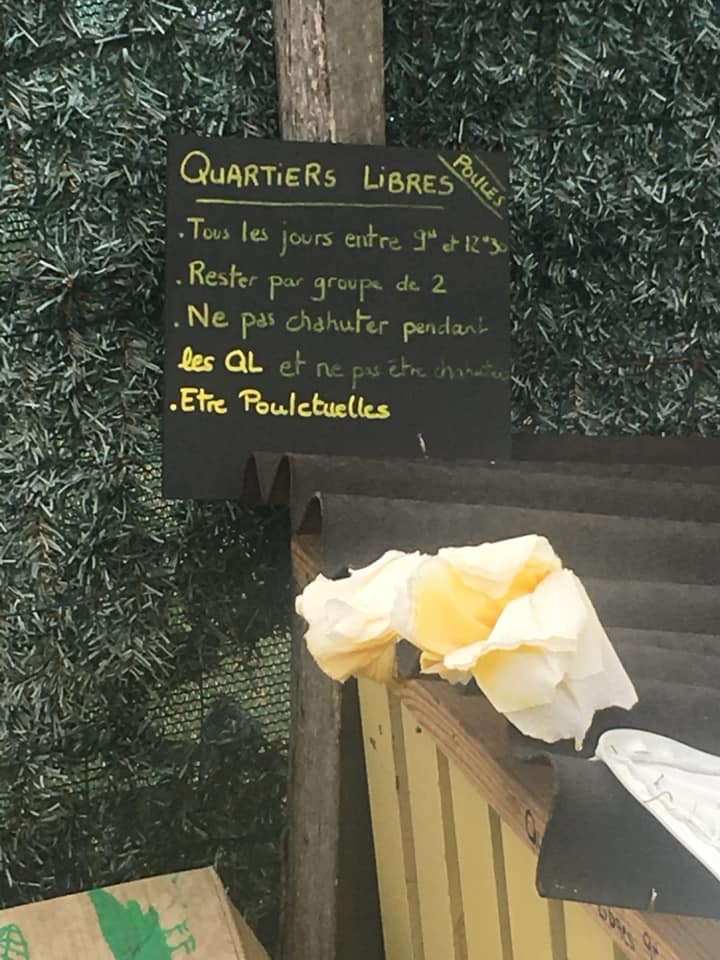 QUARTIERS LIBRES
POULES
. Tous les jours entre 9H et 12H30
. Rester par groupe de 2
. Ne pas chahuter pendant
les QL et ne pas être
. Etre Pouletuelles